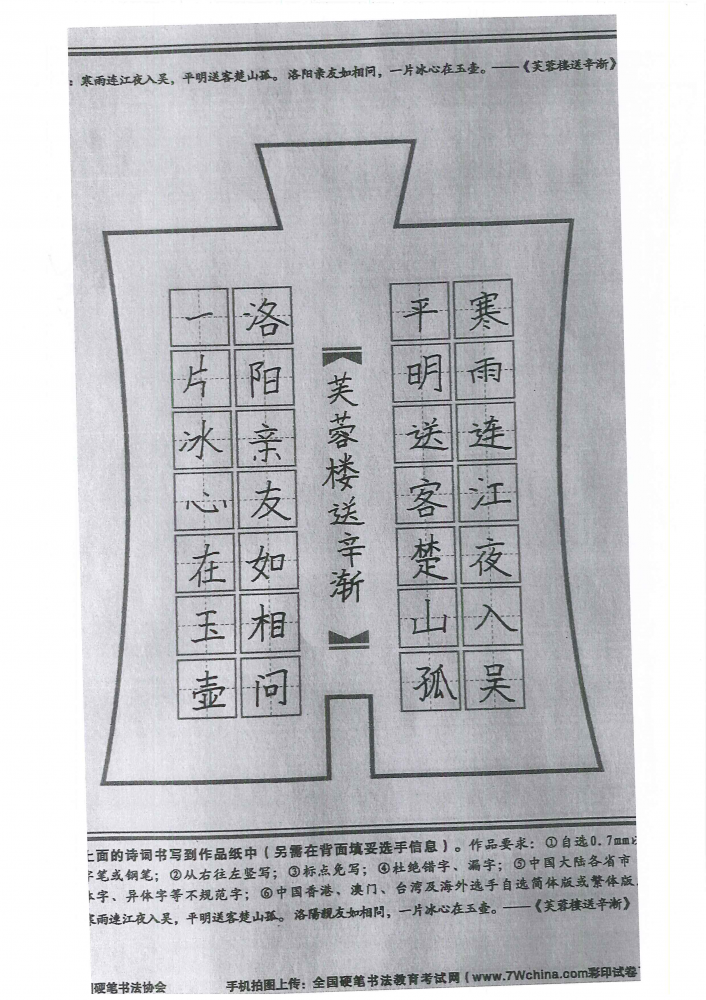 ：寒雨连江夜入吴，平明送客楚山孤。洛阳亲友如相问，一片冰心在玉壶。——《芙蓉楼送辛渐》
寒雨连江夜入吴
平明送客楚山孤
芙蓉楼送辛渐
洛阳亲友如相问
一片冰心在玉壶
上面的诗词书写到作品纸中（另需在背面填妥选手信息）。作品要求：①自选0.7mm
字笔或钢笔；②从右往左竖写；③标点免写；④杜绝错字、漏字；⑤中国大陆各省市
体字、异体字等不规范字；⑥中国香港、澳门、台湾及海外选手自选简体版或繁体版
寒雨連江夜入吳，平明送客楚山孤。洛陽親友如相問，一片冰心在玉壺。——《芙蓉樓送辛漸》
硬笔书法协会
手机拍图上传：全国硬笔书法教育考试网（www.7Wchina.com彩印试卷